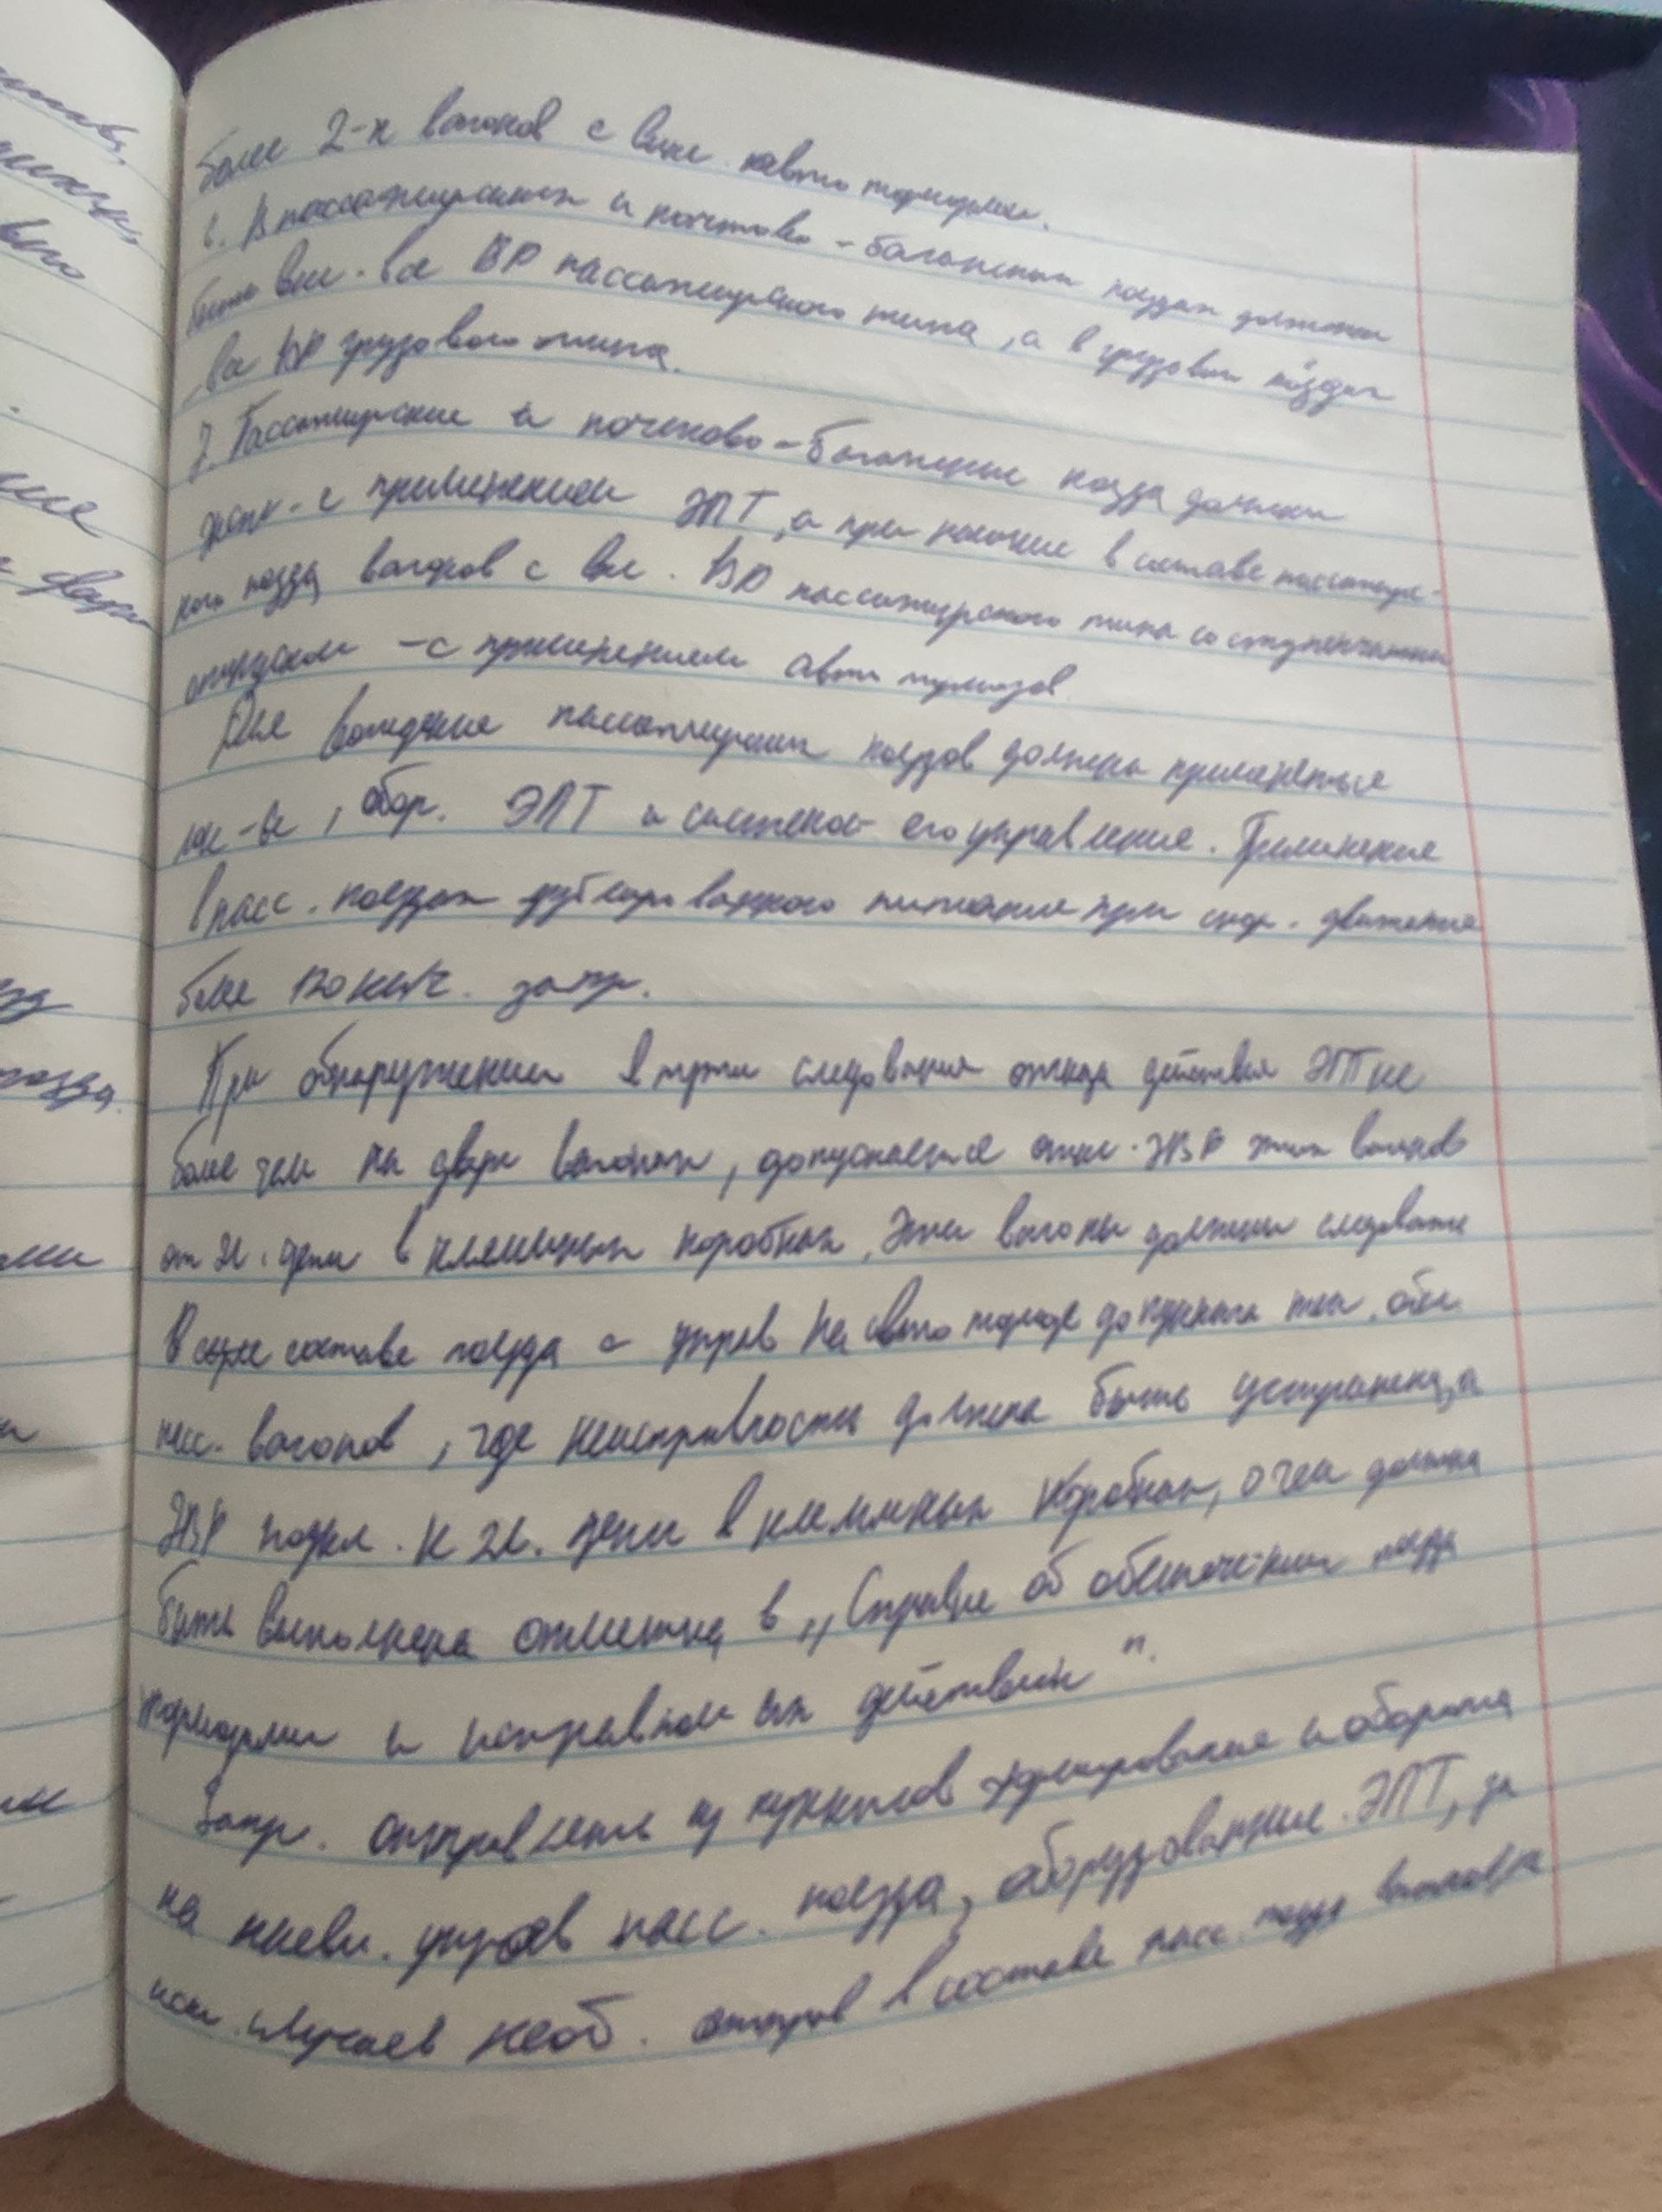 более 2-х вагонов с выкл. автотормозами.
6. В пассажирских и почтово-багажных поездах должны
быть вкл. все ВР пассажирского типа, а в грузовых поездах
все ВР грузового типа.
7. Пассажирские и почтово-багажные поезда должны
экспл. с применением ЭПТ, а при наличии в составе пассажирс-
кого поезда вагонов с вкл. ВР пассажирского типа со ступенчатым
отпуском - с применением автотормозов.
Для вождения пассажирских поездов должны применяться
лок-вы, обор. ЭПТ и системой его управления. Применение
в пасс. поездах дублированного питания при скор. движения
более 120 км/ч. запр.
При обнаружении в пути следования отказа действия ЭПТ не
более чем на двух вагонах, допускается откл. ЭВР этих вагонов
от эл. цепи в клеммных коробках. Эти вагоны должны следовать
В составе поезда с управ на авто тормозе до пункта тех. обсл.
пасс. вагонов, где неисправность должна быть устранена, а
ЭВР подкл. к эл. цепи в клеммных коробках, о чем должна
быть выполнена отметка в „Справке об обеспечении поезда
тормозами и исправном их действии".
Запр. отправлять из пунктов формирования и оборота
на пневм. управ пасс. поезда, оборудованные ЭПТ, за
искл. случаев необ. отправ в составе пасс. поезда вагонов